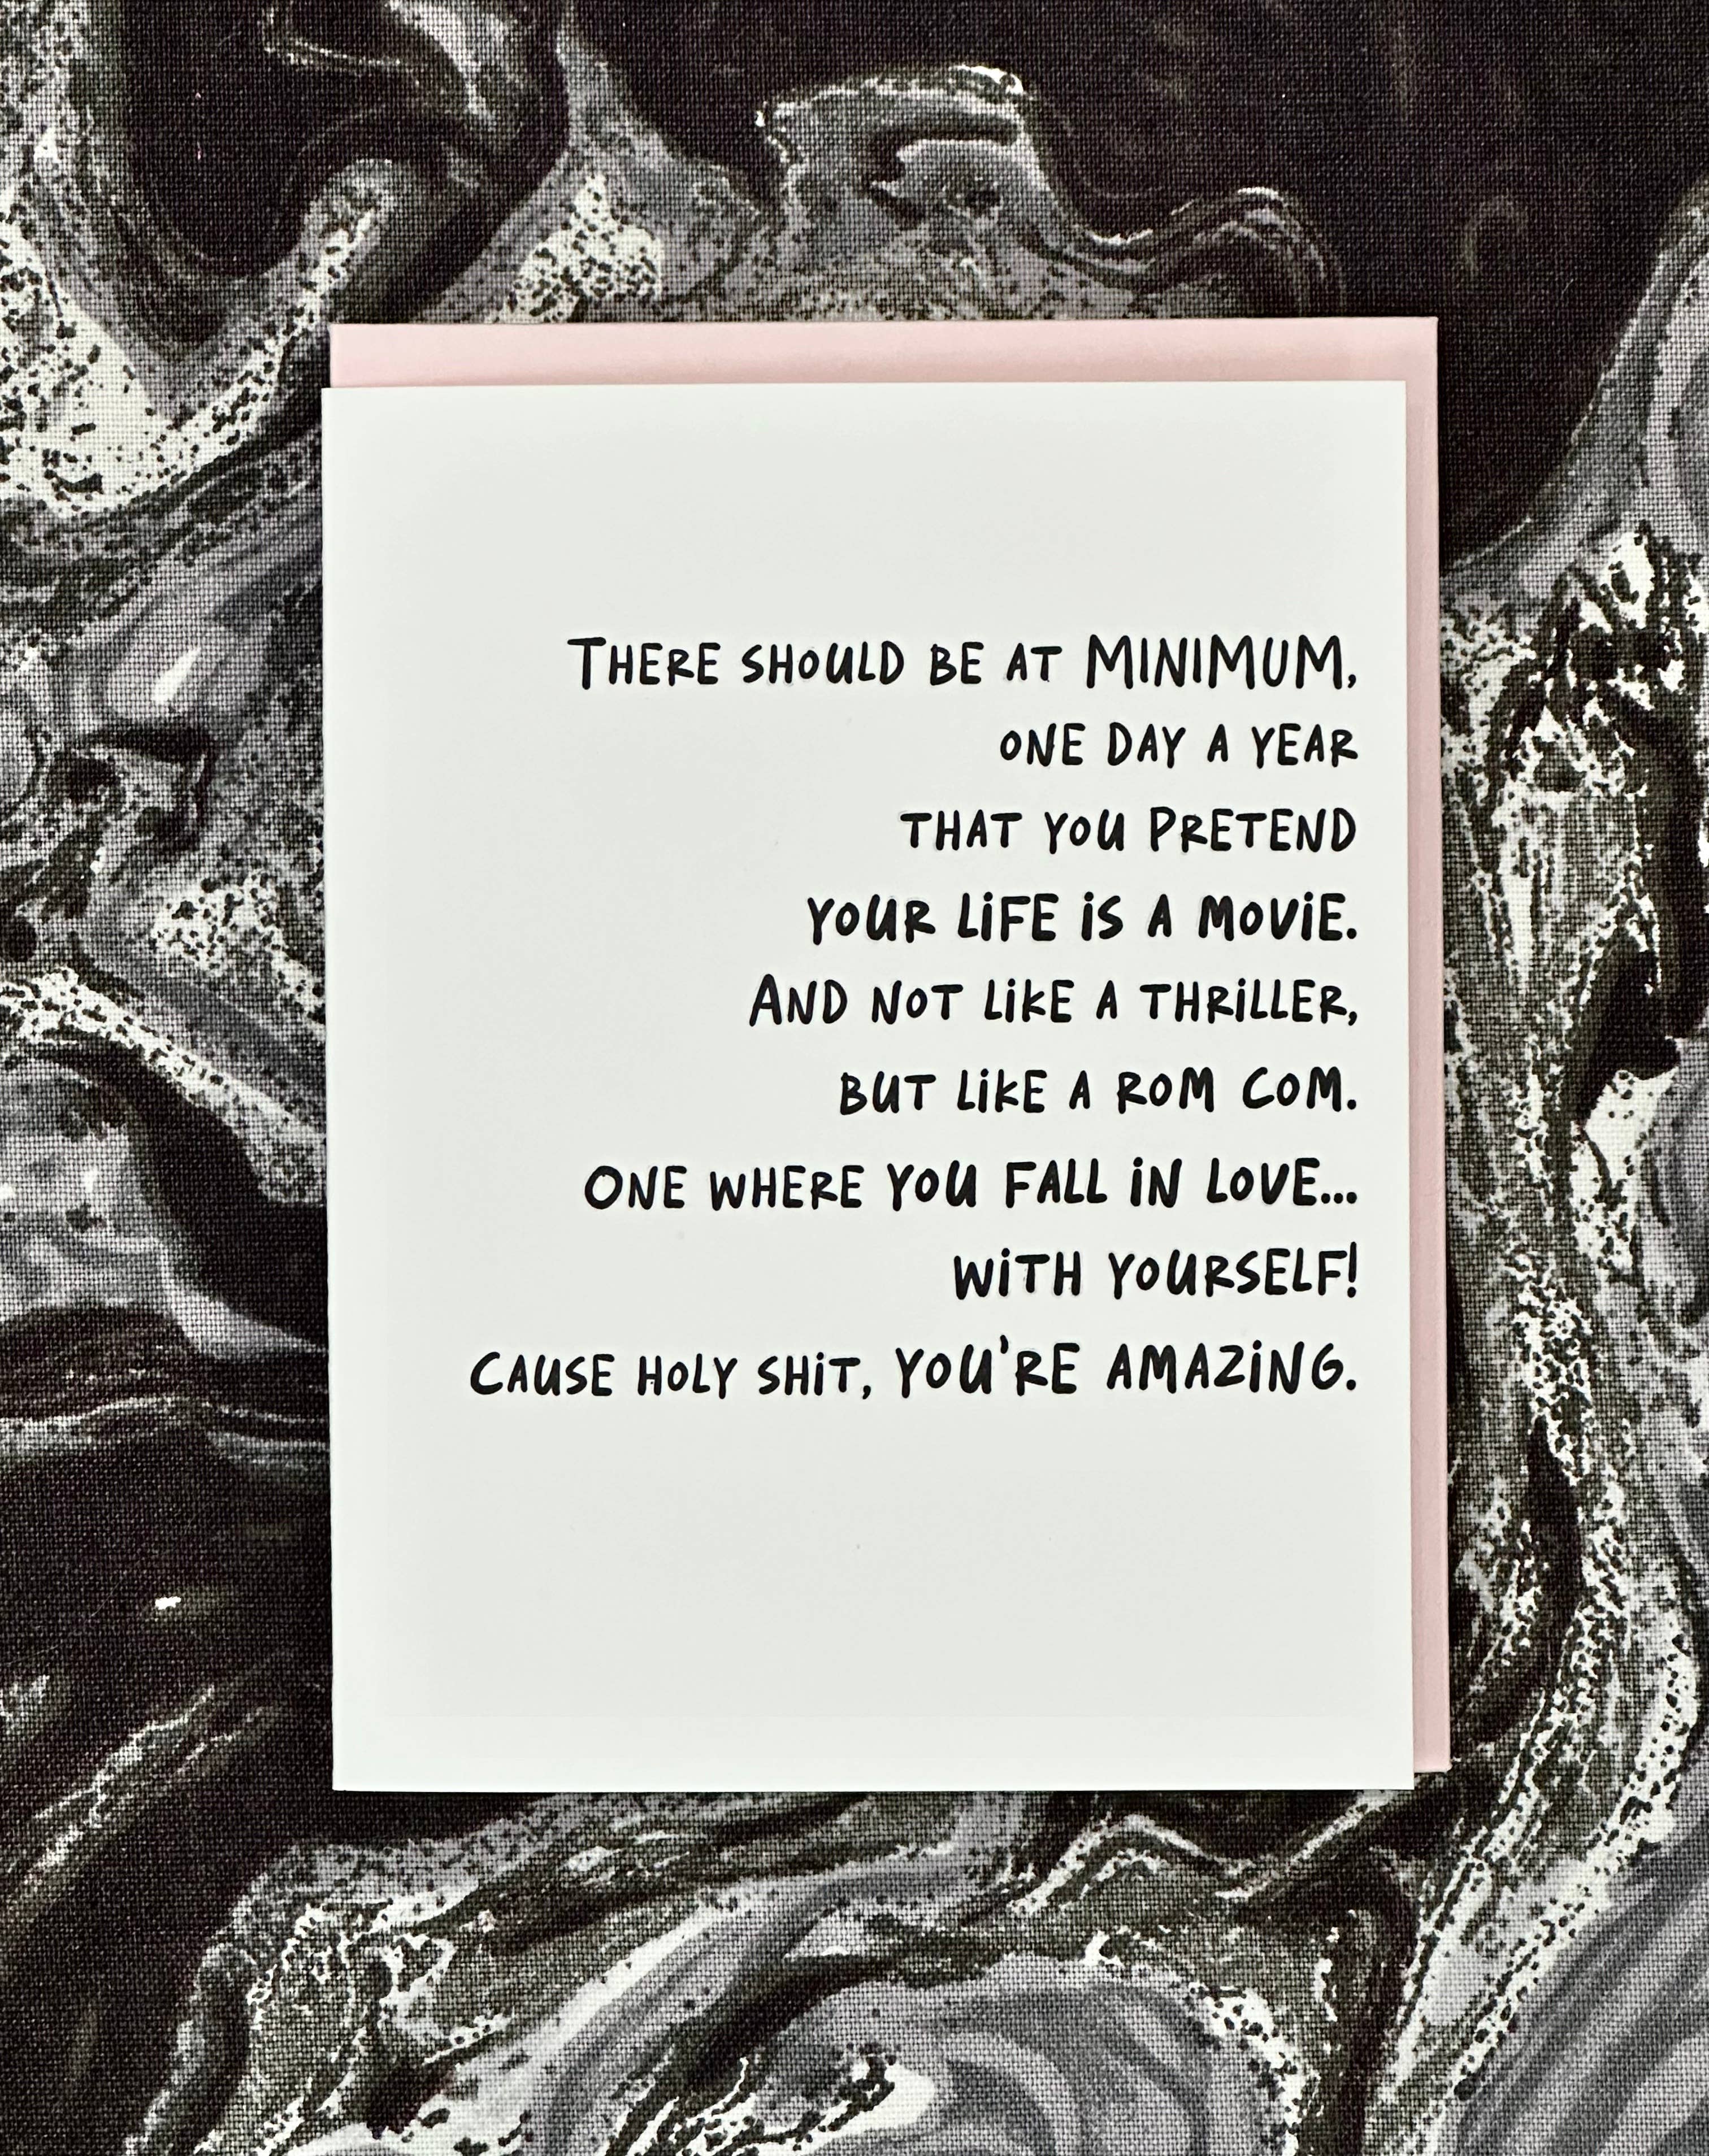 THERE SHOULD BE AT MINIMUM,
ONE DAY A YEAR
THAT YOU PRETEND
YOUR LiFE iS A MOViE.
AND NOT LiKE A THRiLLER,
BUT LiKE A ROM COM.
ONE WHERE YOU FALL iN LOVE...
WiTH YOURSELF!
CAUSE HOLY SHiT, YOU'RE AMAZiNG.